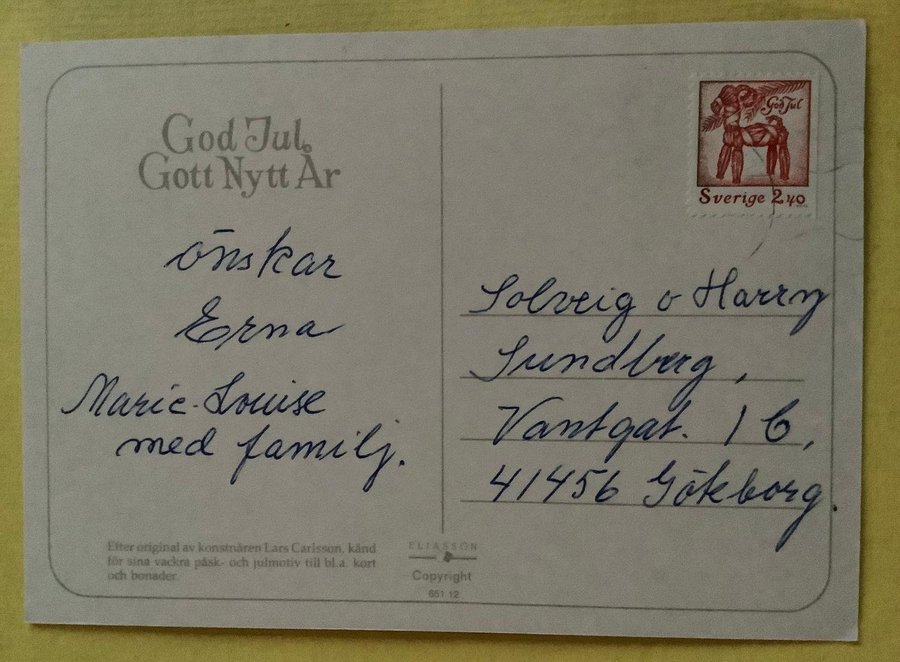 God Jul
Gott Nytt År
önskar
Erna
Marie-Louise
med familj.
Efter original av konstnären Lars Carlsson, känd
för sina vackra påsk- och julmotiv till bl.a. kort
och bonader.
ELIASSON
Copyright
651 12
God Jul
Sverige 2 40
Solveig o Harry
Sundberg,
Vantgat. 1 C,
41456 Göteborg.